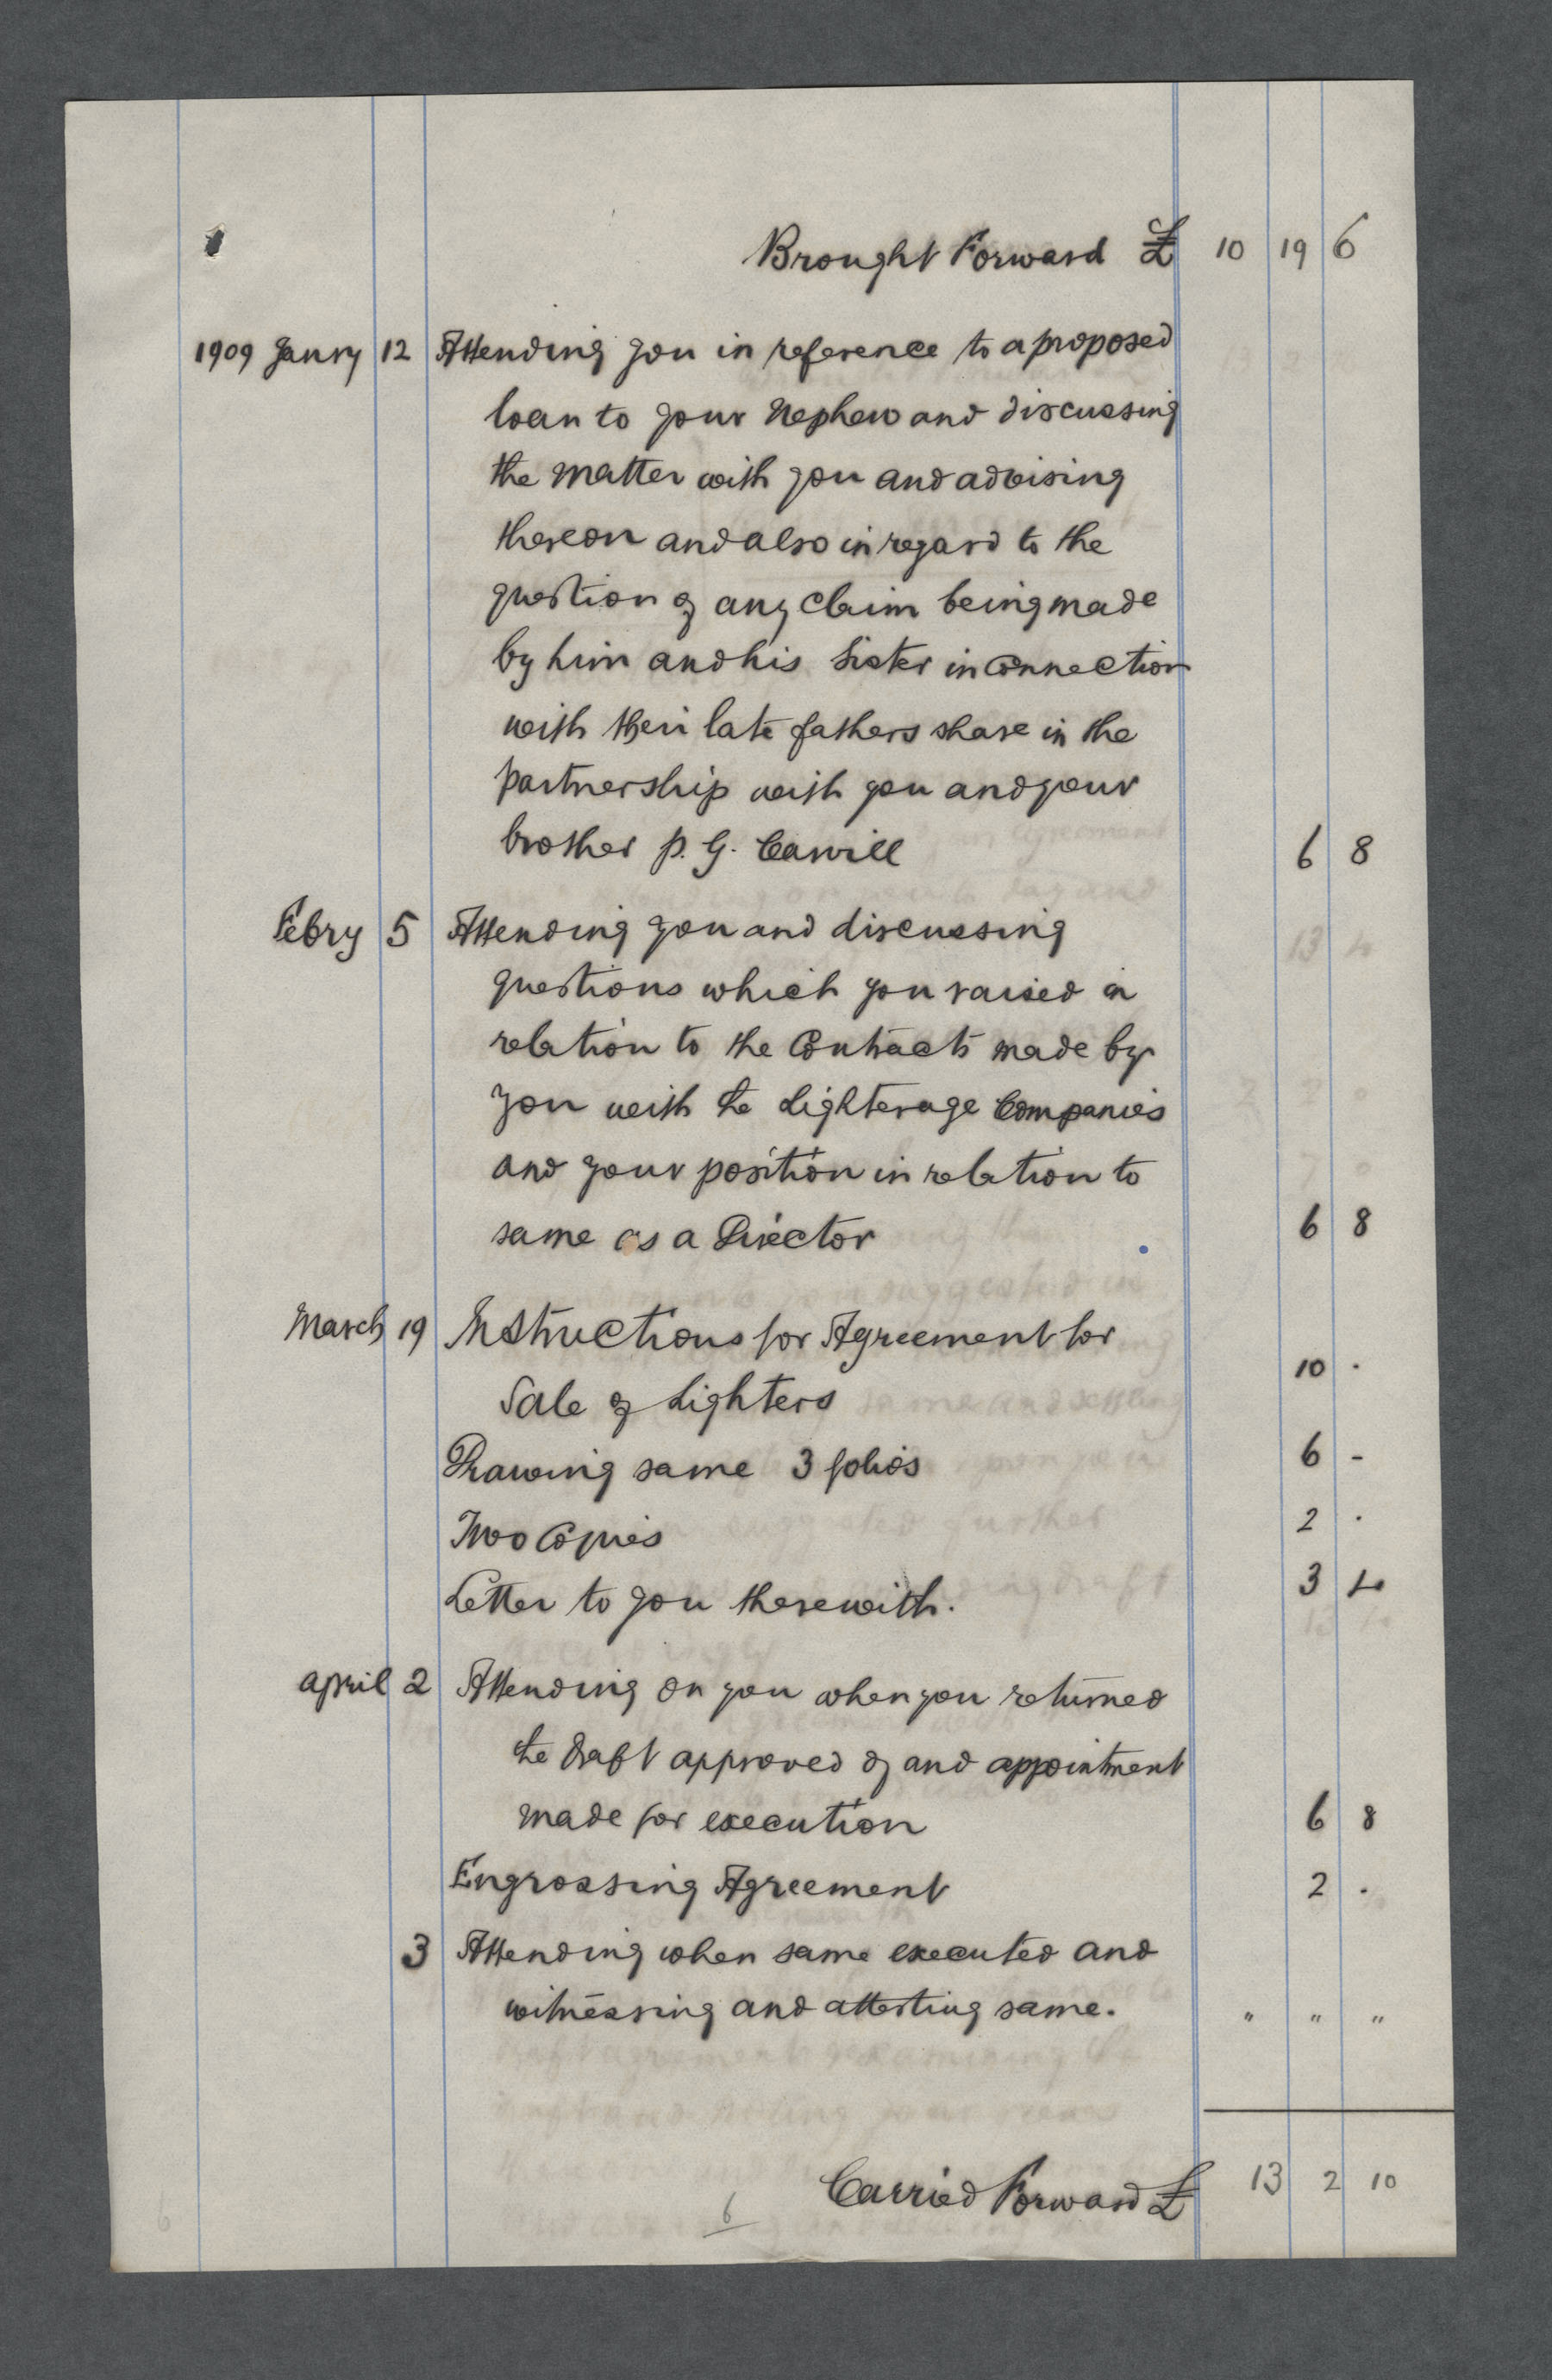 Brought Forward £ 10 19 6
1909 Janry 12 Attending you in reference to a proposed
loan to your Nephew and discussing
the matter with you and advising
thereon and also in regard to the
question of any claim being made
by him and his Sister in Connection
with their late fathers share in the
partnership with you and your
brother P. G. Carvill 6 8
Febry 5 Attending you and discussing
questions which you raised in
relation to the Contracts made by
you with the Lighterage Companies
and your position in relation to
same as a Director 6 8
March 19 Instructions for Agreement for
Sale of Lighters 10 .
Drawing same 3 folios 6 -
Two Copies 2 .
Letter to you therewith. 3 4
April 2 Attending on you when you returned
the draft approved of and appointment
made for execution 6 8
Engrossing Agreement 2 .
3 Attending when same executed and
witnessing and attesting same. " " "
Carried Forward £ 13 2 10
6